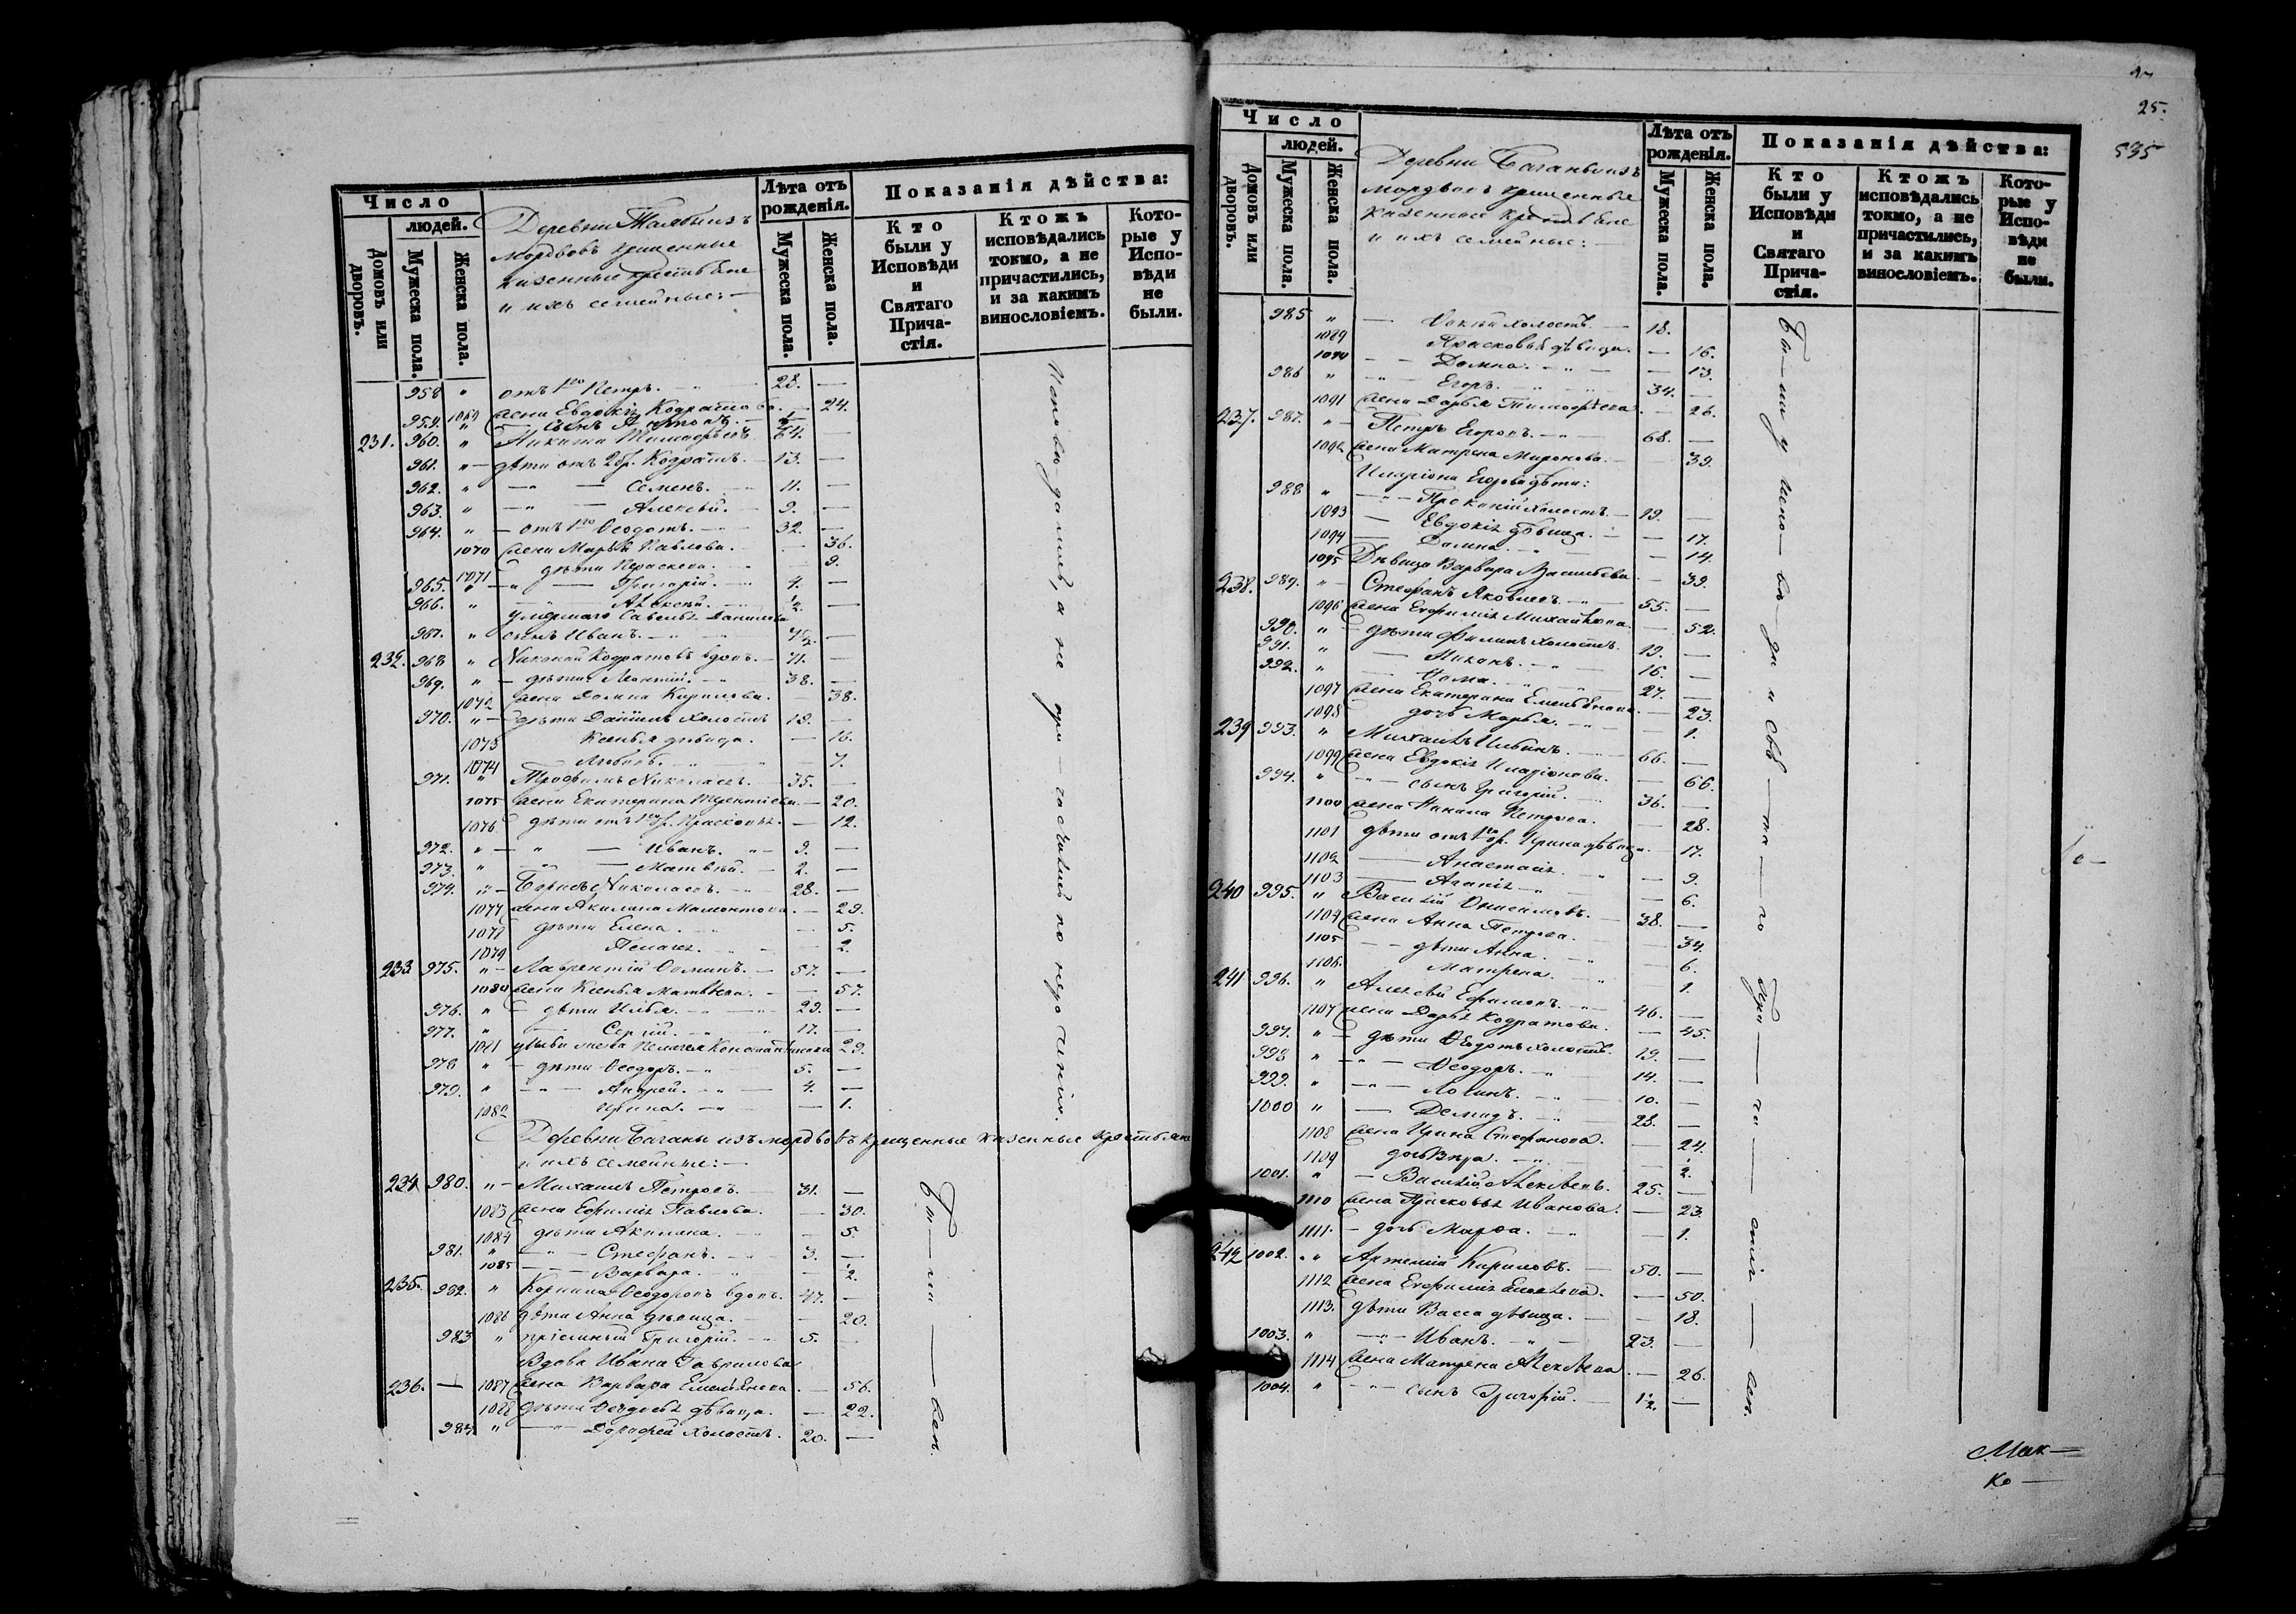 Число
людей.
Домовъ или дворовъ.
Мужеска пола.
Женска пола.
Деревни изъ
мордвовъ крещенные
казенные крестьяне
и ихъ семейные: —
Лѣта отъ рожденія.
Мужеска пола.
Женска пола.
Показанія дѣйства:
Кто были у Исповѣди и Святаго Прича-стія.
Ктожъ исповѣдались токмо, а не причастились, и за какимъ винословіемъ.
Кото-рые у Испо-вѣди не были.
958 " отъ 1го Петръ. — 28. —
1069 жена Евдокія Кодратова. — 24.
959. " — сынъ
231. 960. " Никита Тимофѣевъ. 64. —
961. " — дѣти отъ 2 бр. Кодратъ. — 13. —
962. " — " — Семенъ. 11. —
963. " — " — Алексѣй. — 9. —
964. " — отъ 1го Ѳеодотъ. — 32. —
1070 жена Марья Павлова. — 36.
1071 дѣти Параскева. — 9.
965. " — " — Григорій. — 4. —
966. " — Алексѣй. — ½. —
умершаго Савелья Данилова
967. " сынъ Иванъ. —
232. 968 " Николай Кодратовъ вдовъ. — 71. —
969. " — дѣти: Леонтій. — 38. —
1072 жена Домна Кирилова. 38.
970. " — дѣти Даніилъ холостъ 19. —
1073 Ксенья дѣвица. — 16.
1074 Любовь. 7.
971. " Трофимъ Николаевъ. — 35. —
1075 жена Екатерина Терентіева. — 20.
1076 дѣти отъ 1го бр. Прасковья. — 12.
972. " — " — Иванъ. " — 9. —
973. " — Матвѣй. — 2. —
974. " — Борисъ Николаевъ. — 28. —
1077 жена Акилина Мамонтова. — 29.
1078 дѣти Елена. — 5.
1079 Пелагея. — 2.
233 975. " — Лаврентій Ѳоминъ. — 57. —
1080 жена Ксенья Матвѣева. — 57.
976. " — дѣти Илья. — 29. —
977. " — Сергій. — 17. —
1081 Ильи жена Пелагея Константинова 29.
978 " — дѣти Ѳеодоръ. — 5. —
979. " — " — Андрей. — 4. —
1082 Ирина. — — 1.
Исповѣдались, а не причастились по нерачению.
Деревни Баганы изъ мордвовъ крещенные казенные крестьяне
и ихъ семейные: —
234 980. " — Михаилъ Петровъ. 31. —
1083 жена Ефимія Павлова. — 30.
1084 дѣти Акилина. — 5.
981. " — " — Стефанъ. — 3. —
1085 — — Варвара. — ½.
235. 982. " Корнилъ Ѳеодоровъ вдовъ. 47. —
1086 дѣти Анна дѣвица. — 20.
983 " пріемный Григорій. — 5.
Вдова Ивана Гаврилова
236. — 1087 жена Варвара Емельянова. — 56.
1088 дѣти Ѳеодосья дѣвица. — 22.
984 " — " — Дорофей холостъ. 20. —
25.
535
Число
людей.
Домовъ или дворовъ.
Мужеска пола.
Женска пола.
Деревни Баганы изъ
мордвовъ крещенные
казенные крестьяне
и ихъ семейные:
Лѣта отъ рожденія.
Мужеска пола.
Женска пола.
Показанія дѣйства:
Кто были у Исповѣди и Святаго Прича-стія.
Ктожъ исповѣдались токмо, а не причастились, и за какимъ винословіемъ.
Кото-рые у Испо-вѣди не были.
985 " — холостъ. — 18.
1089 Прасковья дѣвица. — 16.
1090 — — Домна. — — 13.
986 " — " — Егоръ. — 34. —
1091 жена Дарья Тимофѣева. — 26.
237. 987. " — Петръ Егоровъ. — 68. —
1092 жена Матрена Миронова. — 39.
Иларіона Егорова дѣти:
988 " — " — Прокопій холостъ. — 19. —
1093 — Евдокія дѣвица. — — 17.
1094 — Домна. — — 14.
1095 Дѣвица Варвара Васильева — 39.
238. 989. " — Стефанъ Яковлевъ. — 55. —
1096 жена Евфимія Михайлова. — 52.
990. " — дѣти Филипъ холостъ. 19. —
991. " — Никонъ. — 16. —
992. " — Ѳома. — 27. —
1097 жена Екатерина Емельянова. — 23.
1098 дочь Марья. — — 1.
239 993. " Михаилъ Ильинъ. — 66. —
1099 жена Евдокія Иларіонова. — 66.
994. " — " — сынъ Григорій. — 36. —
1100 жена Петрова. — 28.
1101 дѣти отъ 1го бр. Ирина дѣвица. 17.
1102 — Анастасія. — 9.
1103 — Агапія — — 6.
240 995. " Василій Онисимовъ. — 38. —
1104 жена Анна Петрова. — 34.
1105 — — дѣти Анна. — 6.
1106. Матрена. — 1.
241 996. " Алексѣй Ефимовъ. — 46. —
1107 жена Дарья Кодратова. — 45.
997. " — дѣти Ѳедотъ холостъ. 19. —
998 " — " — Ѳеодоръ. — 14. —
999. " — " — Логинъ. — 10. —
1000 " — Демидъ. — 28. —
1108 жена Ирина Стефанова. — 24.
1109 дочь Вѣра. — — ½.
1001. " — Василій Алексѣевъ. 25. —
1110 жена Прасковья Иванова. — 23.
1111. — дочь Марѳа. — — 1.
242 1002. " Артемій Кириловъ. — 50. —
1112 жена Евфимія — 50.
1113. дѣти Васса дѣвица. — 18.
1003. " — " — Иванъ. " — 23. —
1114 жена Матрена Алексѣева — 26.
1004. " — " — сынъ Григорій. — 1½. —